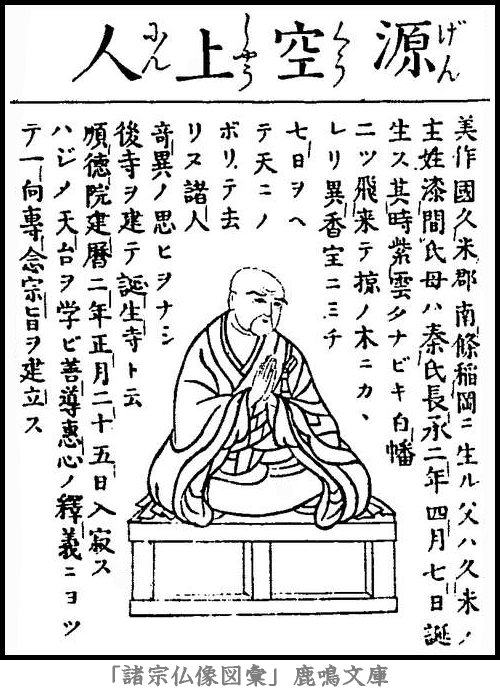 源空上人
げんくうしやうにん
美作國久米郡南條稲岡ニ生ル父ハ久米ノ
主姓漆間氏母ハ秦氏長承二年四月七日誕
生ス其時紫雲タナビキ白幡
二ツ飛来テ椋ノ木ニカヽ
レリ異香室ニミチ
七日ヲヘ
テ天ニノ
ボリテ去
リヌ諸人
竒異ノ思ヒヲナシ
後寺ヲ建テ誕生寺ト云
順徳院建暦二年正月二十五日入寂ス
ハジメ天台ヲ学ビ善導惠心ノ釋義ニヨツ
テ一向専念宗旨ヲ建立ス
「諸宗仏像図彙」鹿鳴文庫